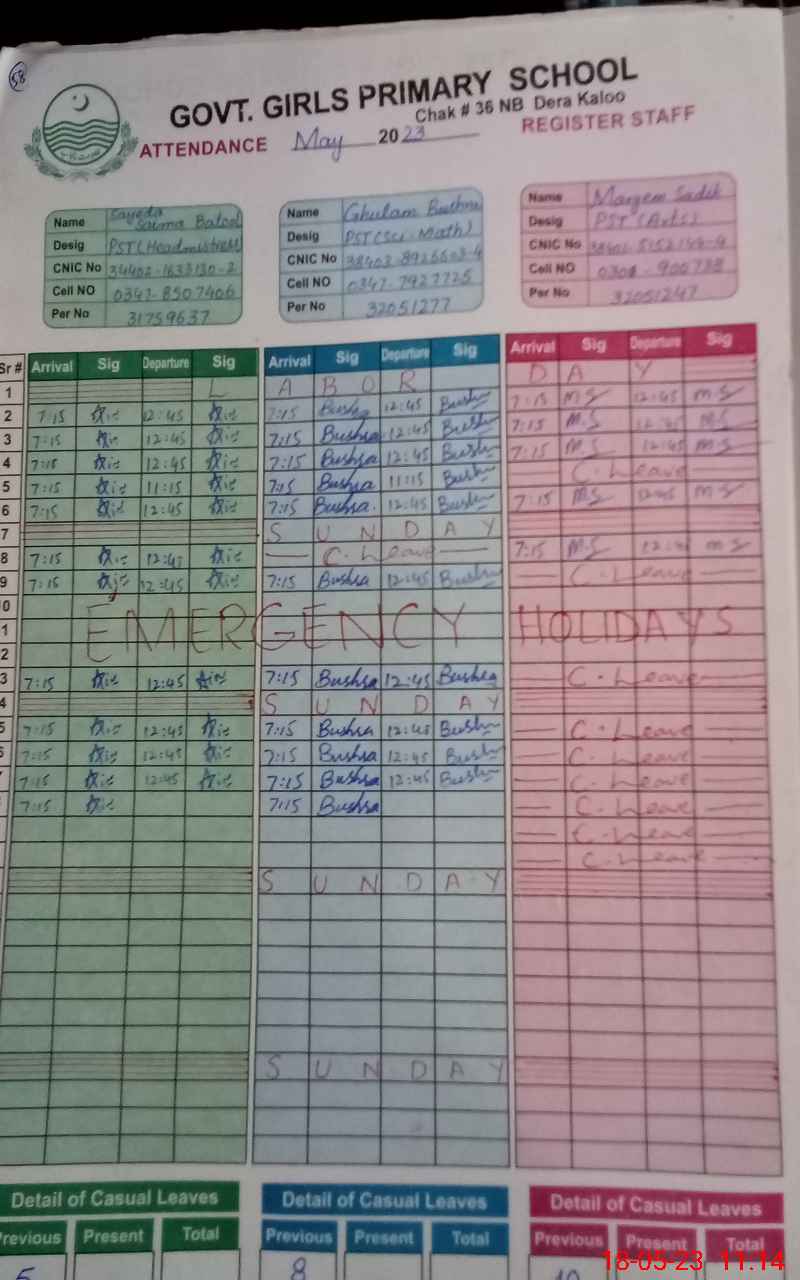 58
GOVT. GIRLS PRIMARY SCHOOL
Chak # 36 NB Dera Kaloo
ATTENDANCE May 2023 REGISTER STAFF
Name Sayeda Saima Batool Name Ghulam Bushra Name Maryem Sadik
Desig PST(Headmistress) Desig PST(Sci-Math) Desig PST(Arts)
CNIC No 34402-1633130-2 CNIC No 38403-8926603-4 CNIC No
Cell NO 0347-8507406 Cell NO 0347-7927725 Cell NO
Per No 31759637 Per No 32051277 Per No 32051247
Sr # Arrival Sig Departure Sig Arrival Sig Departure Sig Arrival Sig Departure Sig
1 L A B O R D A Y
2 7:15 12:45 7:15 Bushra 12:45 Bushra 7:15 M.S 12:45 M.S
3 7:15 12:45 7:15 Bushra 12:45 Bushra 7:15 M.S 12:45 M.S
4 7:15 12:45 7:15 Bushra 12:45 Bushra 7:15 M.S 12:45 M.S
5 7:15 11:15 7:15 Bushra 11:15 Bushra C. Leave
6 7:15 12:45 7:15 Bushra 12:45 Bushra 7:15 M.S 12:45 M.S
7 S U N D A Y
8 7:15 12:45 C. Leave 7:15 M.S 12:45 M.S
9 7:15 12:45 7:15 Bushra 12:45 Bushra C. Leave
0
1 EMERGENCY HOLIDAYS
2
3 7:15 12:45 7:15 Bushra 12:45 Bushra C. Leave
4 S U N D A Y
5 7:15 12:45 7:15 Bushra 12:45 Bushra C. Leave
7:15 12:45 7:15 Bushra 12:45 Bushra C. Leave
7:15 12:45 7:15 Bushra 12:45 Bushra C. Leave
7:15 7:15 Bushra C. Leave
C. Leave
C. Leave
S U N D A Y
S U N D A Y
Detail of Casual Leaves Detail of Casual Leaves Detail of Casual Leaves
Previous Present Total Previous Present Total Previous Present Total
5 8 10
18-05-23 11:14